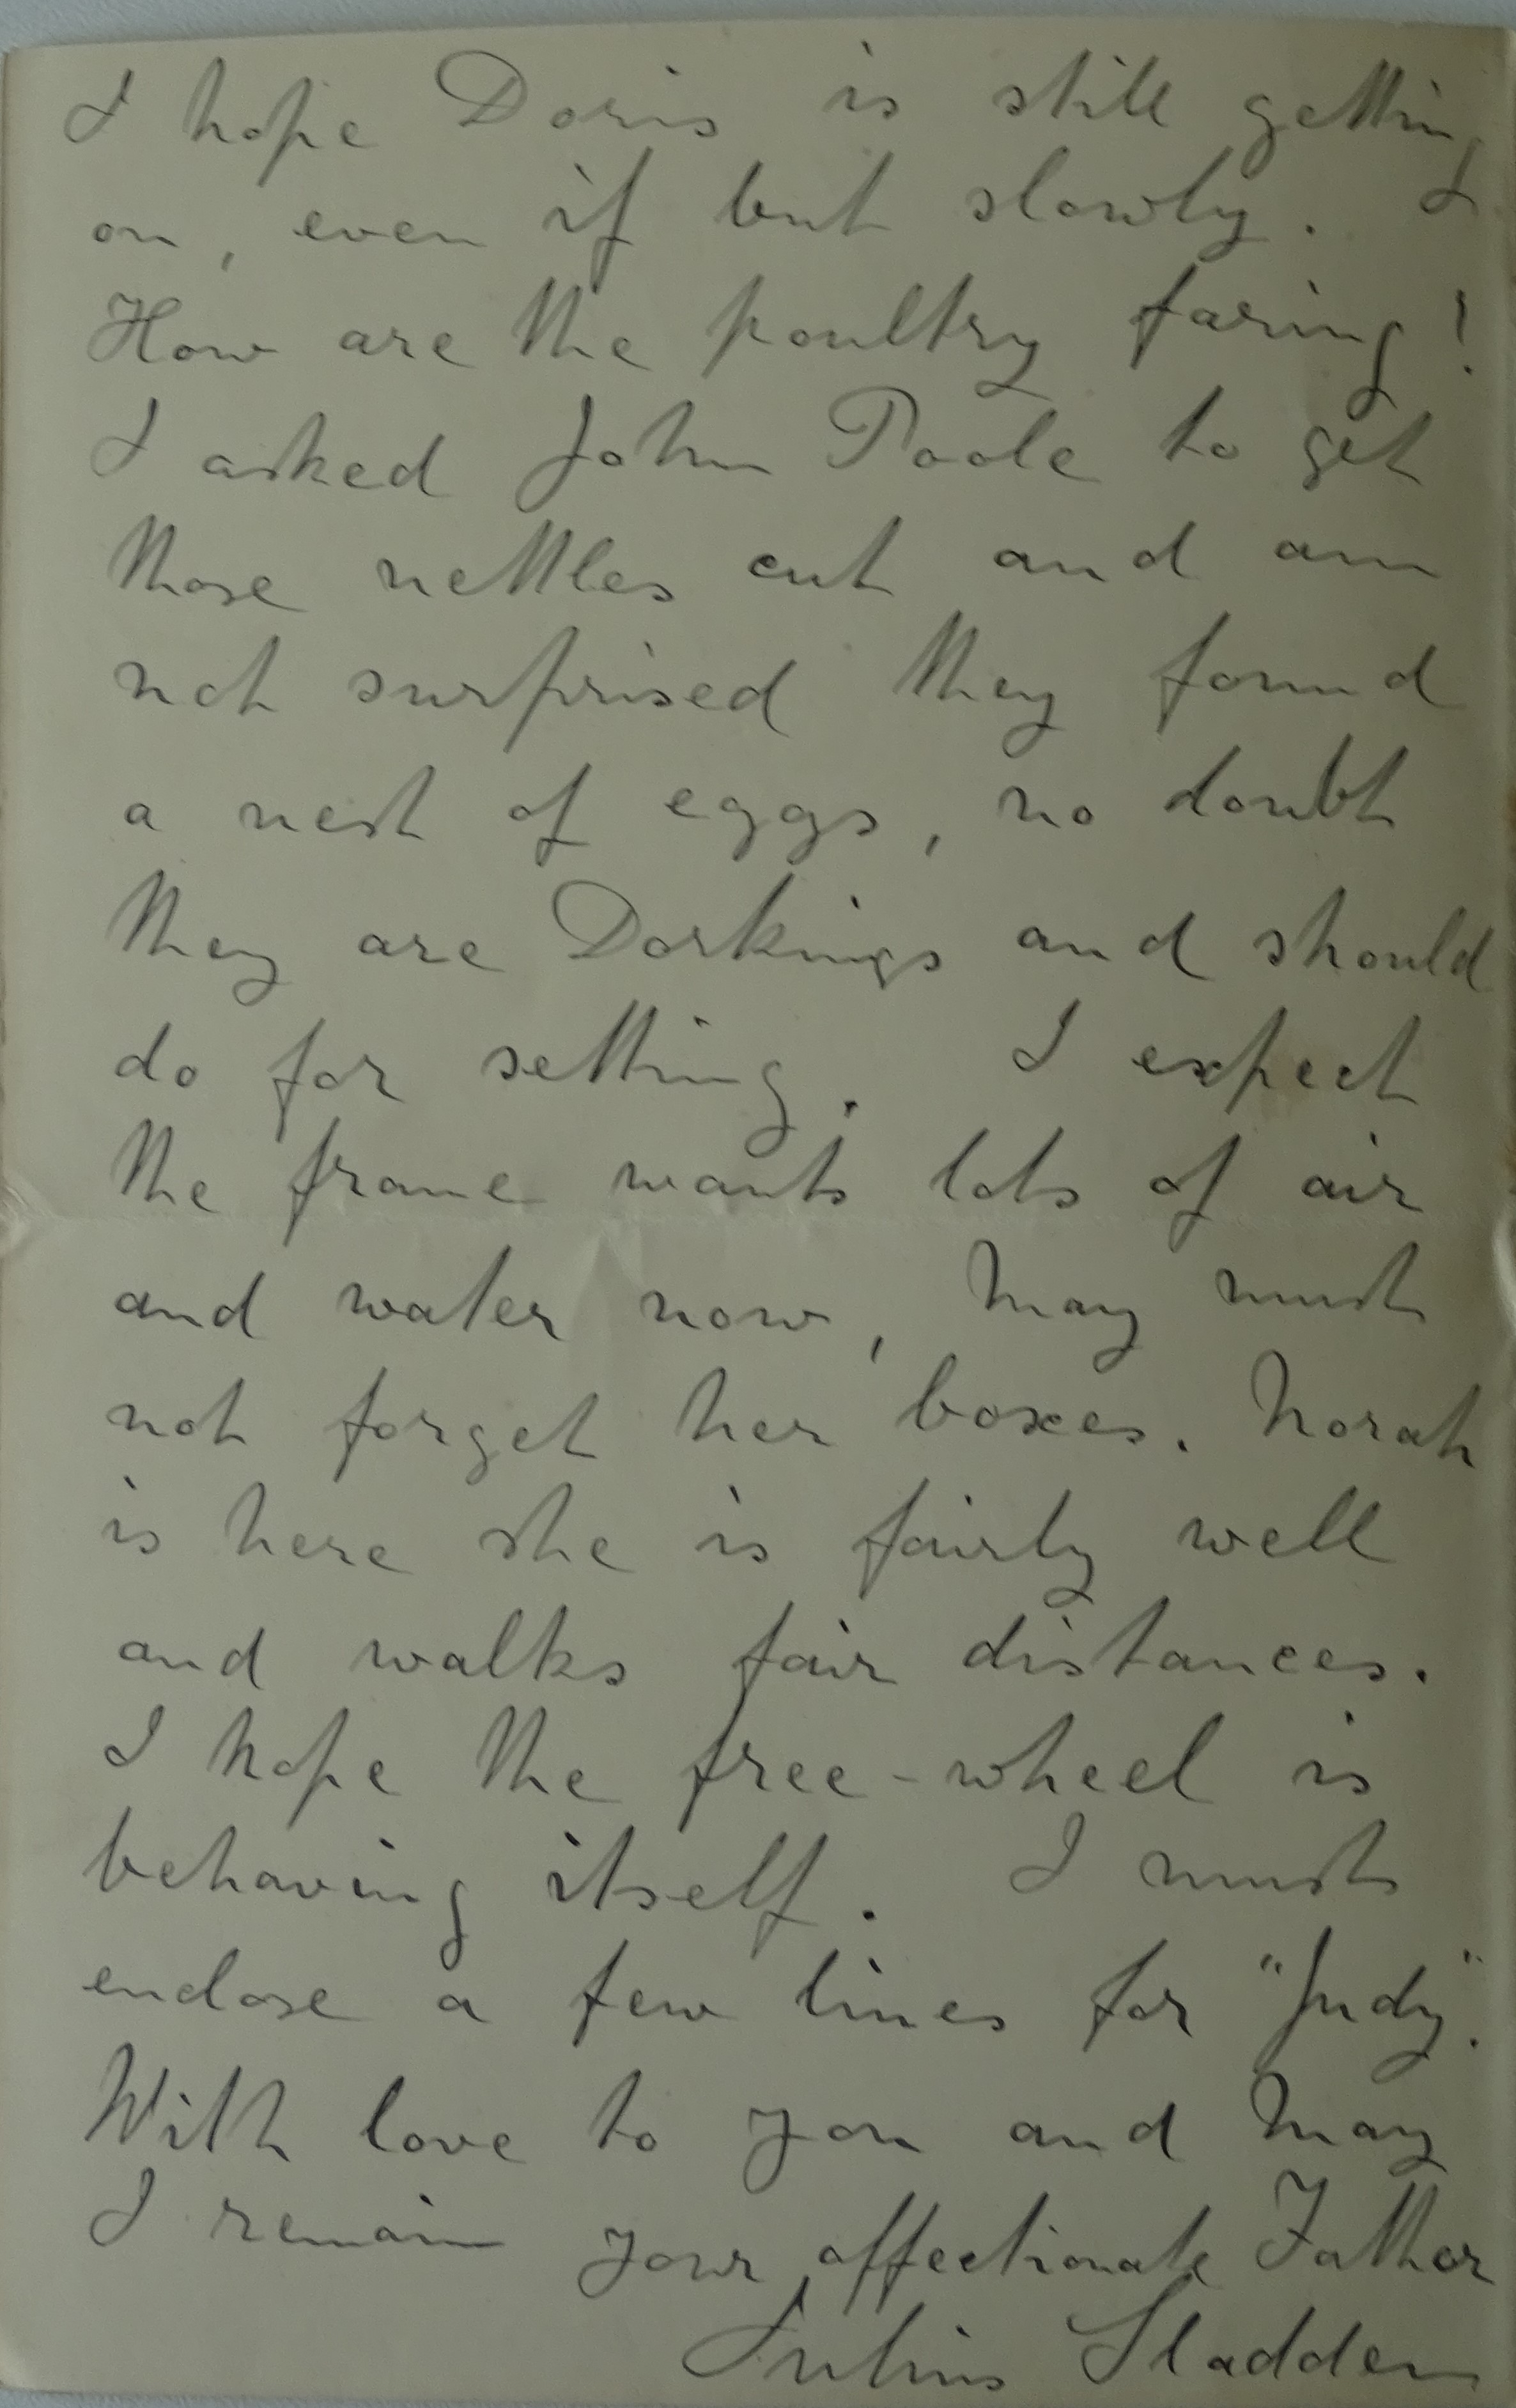 I hope Doris is still getting
on, even if but slowly. I
How are the poultry faring!
I asked John Poole to get
those nettles cut and am
not surprised they found
a nest of eggs, no doubt
they are Dorkings and should
do for setting. I expect
the frame wants lots of air
and water now, May must
not forget her boxes. Norah
is here she is fairly well
and walks fair distances.
I hope the free-wheel is
behaving itself. I must
enclose a few lines for "Judy".
With love to you and May
I remain your affectionate Father
Julius Sladden